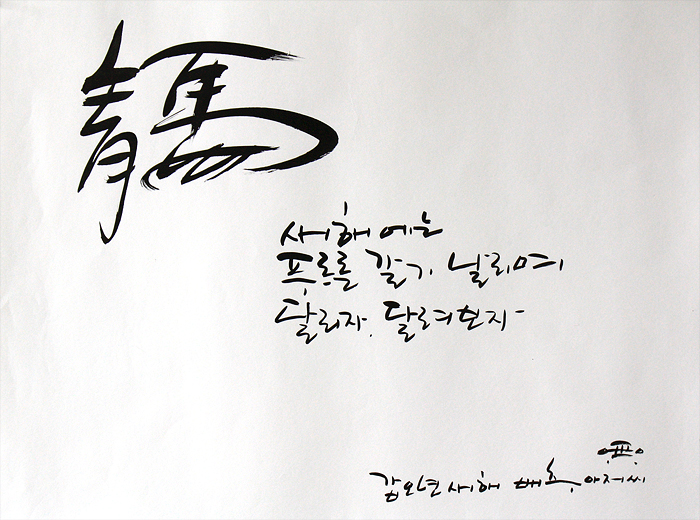 靑馬
새해에는
푸르른 갈기 날리며
달리자. 달려보자-
갑오년 새해 배추아저씨